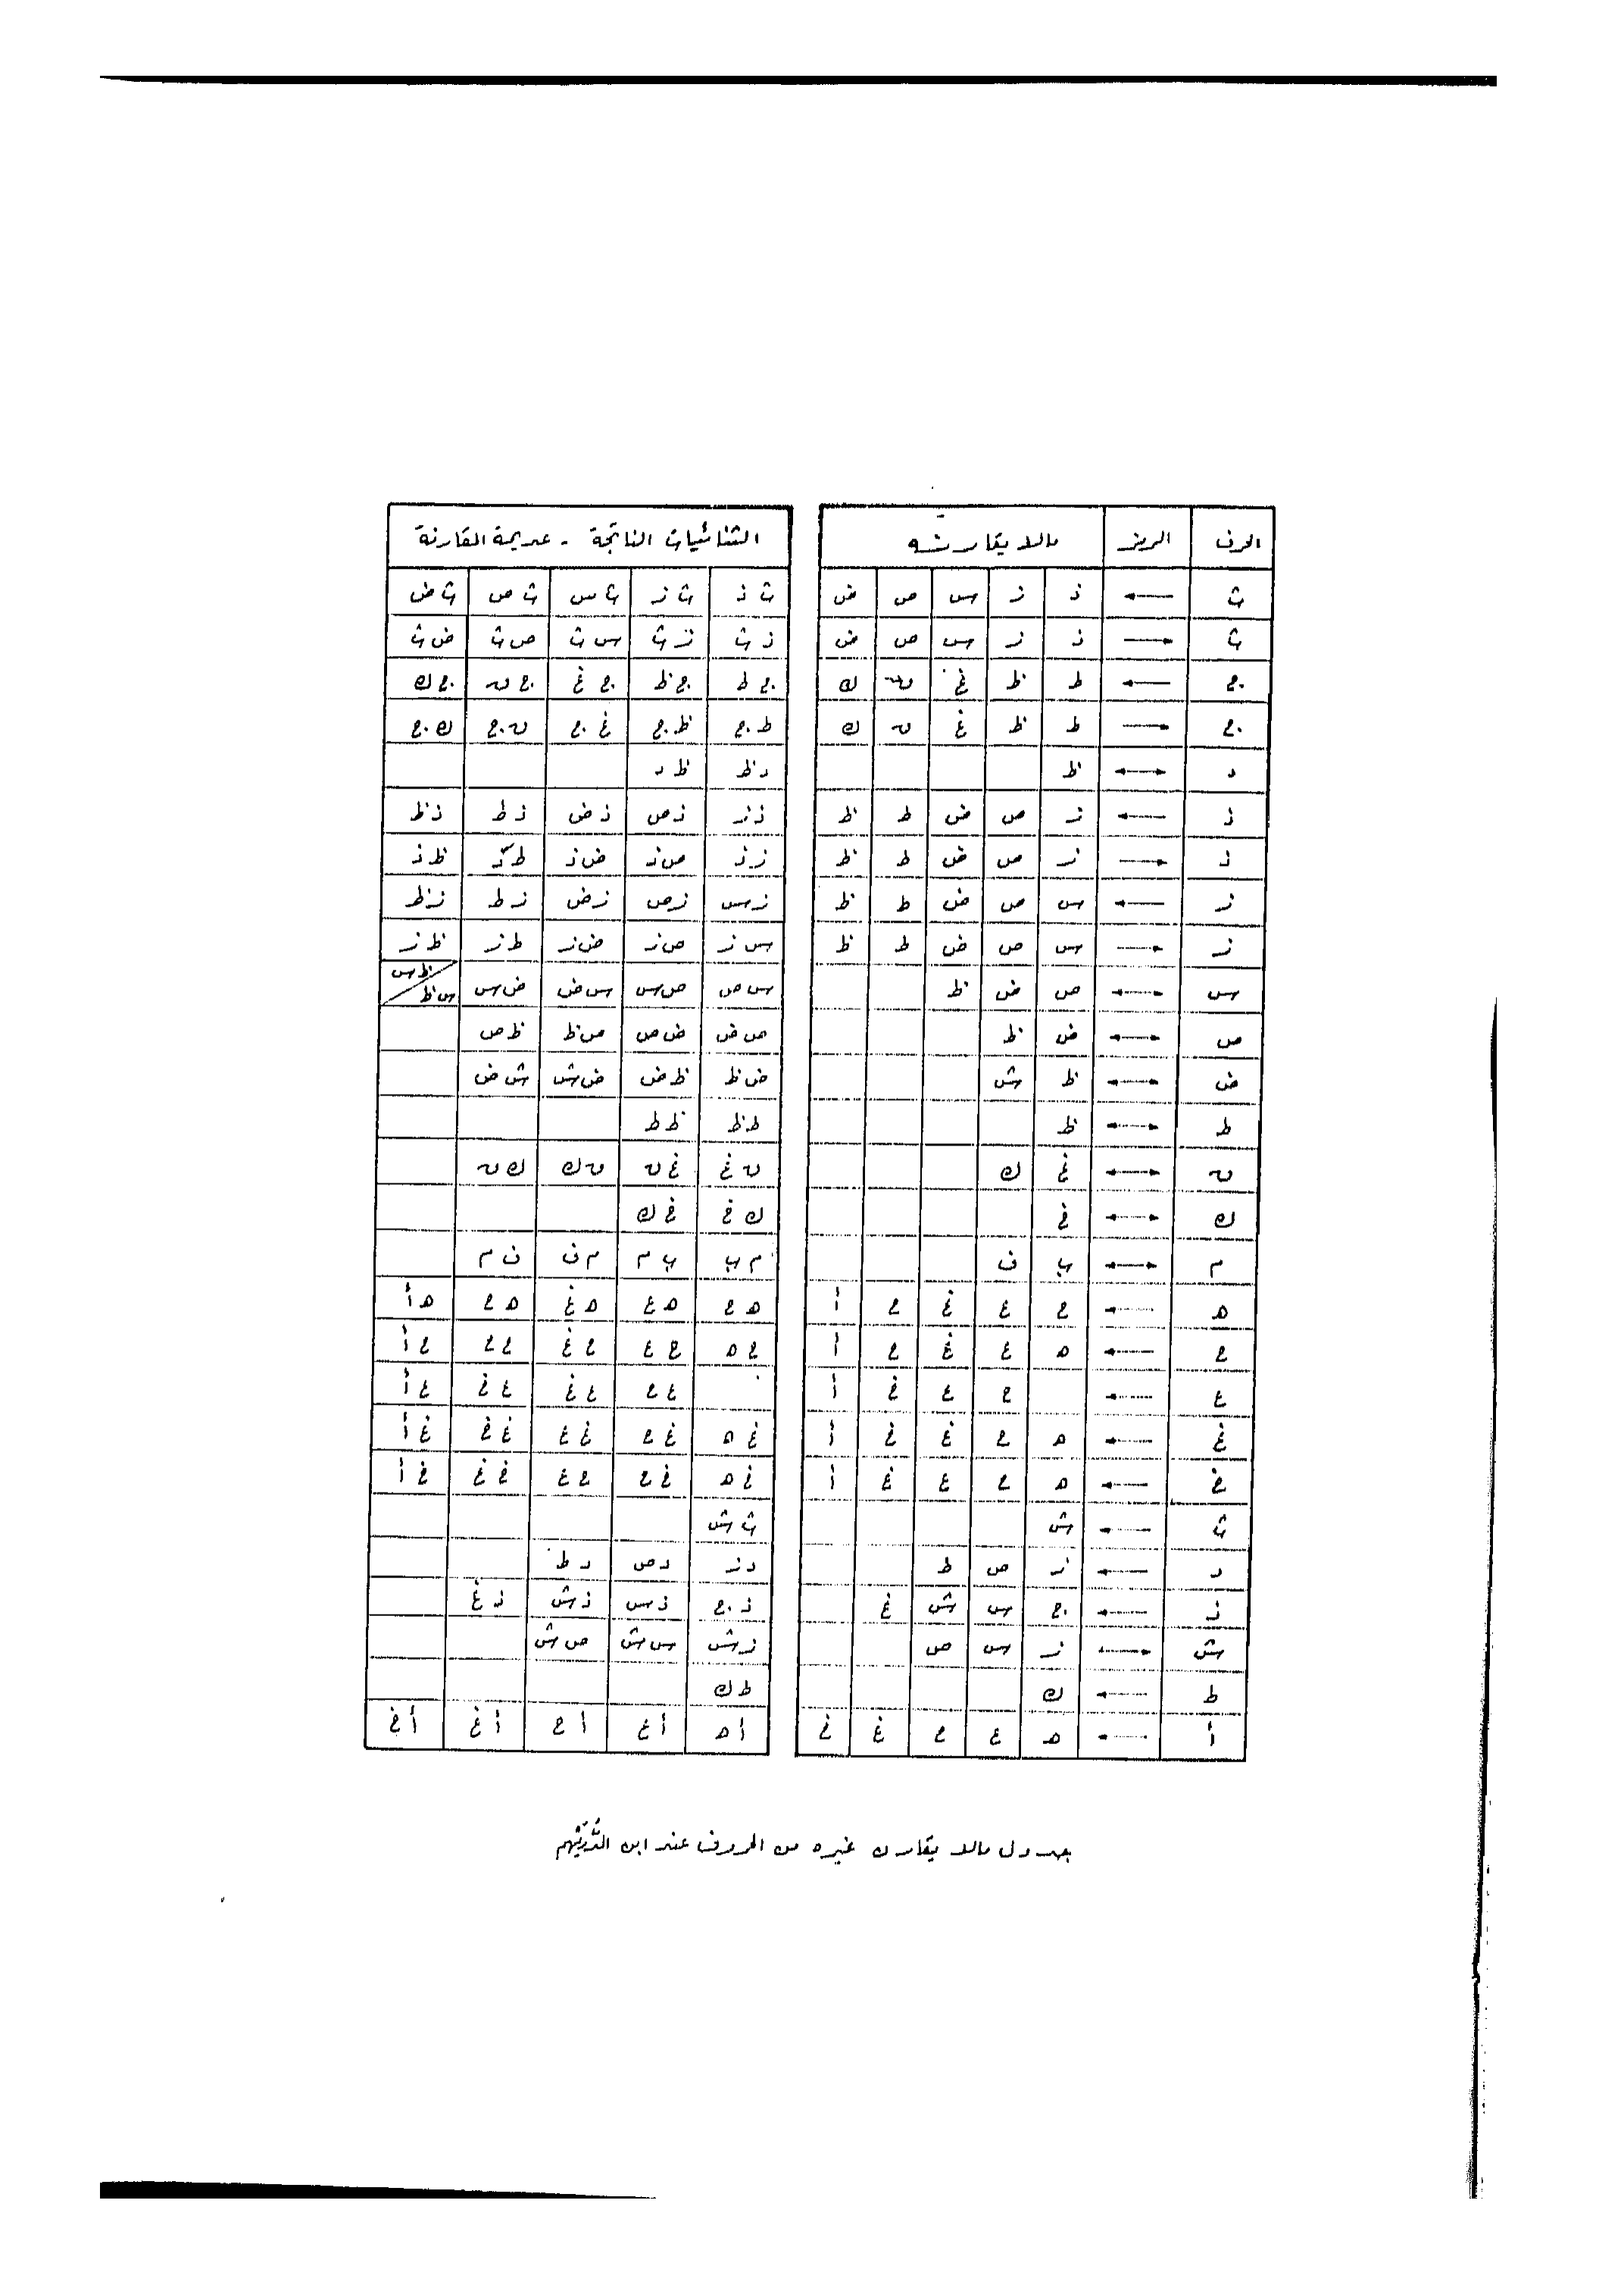 الحرف الرمز مالا يقارنه الثنائيات الناتجة - عديمة المقارنة
ث ← ذ ز س ص ض ث ذ ث ز ث س ث ص ث ض
ث → ذ ز س ص ض ذ ث ز ث س ث ص ث ض ث
ج ← ط ظ غ ق ك ج ط ج ظ ج غ ج ق ج ك
ج → ط ظ غ ق ك ط ج ظ ج غ ج ق ج ك ج
د ↔ ظ د ظ ظ د
ذ ← ز ص ض ط ظ ذ ز ذ ص ذ ض ذ ط ذ ظ
ذ → ز ص ض ط ظ ز ذ ص ذ ض ذ ط ذ ظ ذ
ز ← س ص ض ط ظ ز س ز ص ز ض ز ط ز ظ
ز → س ص ض ط ظ س ز ص ز ض ز ط ز ظ ز
س ↔ ص ض ظ س ص ص س س ض ض س ظ س / س ظ
ص ↔ ض ظ ص ض ض ص ص ظ ظ ص
ض ↔ ظ ش ض ظ ظ ض ض ش ش ض
ط ↔ ظ ط ظ ظ ط
ق ↔ غ ك ق غ غ ق ق ك ك ق
ك ↔ خ ك خ خ ك
م ↔ ب ف م ب ب م م ف ف م
ه ← ح ع غ خ أ ه ح ه ع ه غ ه أ
ح ← ه ع غ أ ح ه ح ع ح غ ح أ
ع ← ح غ أ ع ح ع غ ع خ ع أ
غ ← ه ح أ غ ه غ ح غ ع غ خ غ أ
خ ← ه ح ع غ أ خ ه خ ح خ غ خ أ
ث ← ش ث ش
د ← ز ص ط د ز د ص د ط
ذ ← ج س ش غ ذ ج ذ س ذ ش ذ غ
ش ↔ ز س ص ز ش س ش ص ش
ط ← ك ط ك
أ ← ه ع ح غ خ أ ه أ ع أ ح أ غ أ خ
جدول مالا يقارن غيره من الحروف عند ابن الدُّرَيْهِم